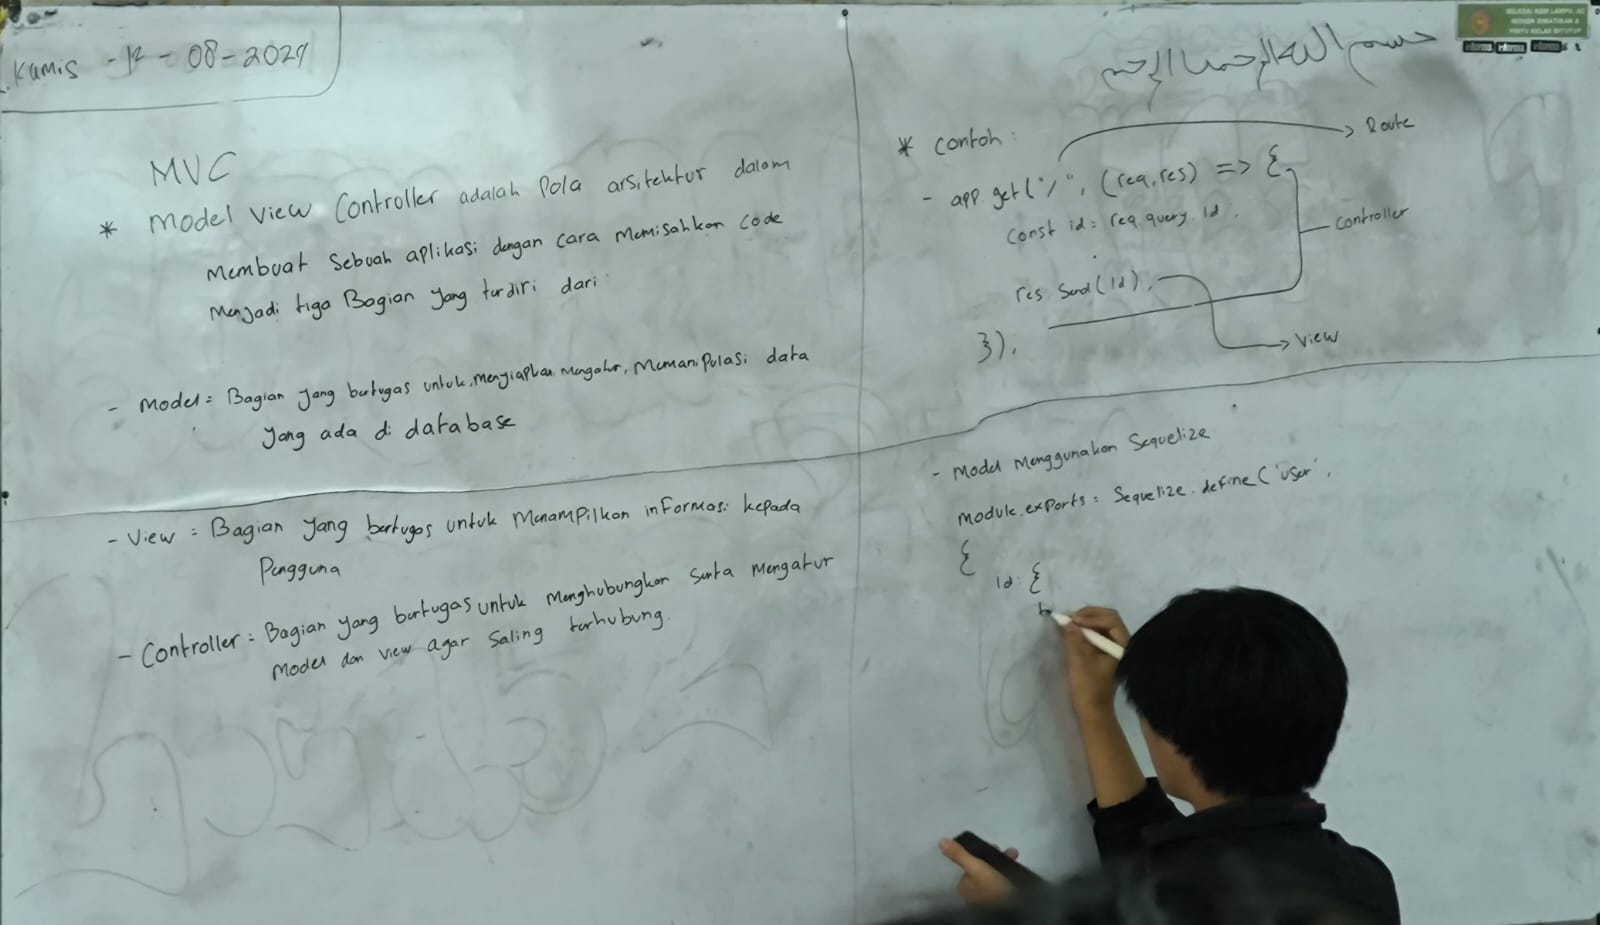 Kamis - 12 - 08 - 2024
MVC
* Model View Controller adalah Pola arsitektur dalam
Membuat Sebuah aplikasi dengan cara Memisahkan Code
Menjadi tiga Bagian yang terdiri dari
- Model = Bagian yang bertugas untuk, menyiapkan mengatur, Memanipulasi data
yang ada di database
- View = Bagian yang bertugas untuk Menampilkan informasi kepada
Pengguna
- Controller = Bagian yang bertugas untuk Menghubungkan serta Mengatur
Model dan View agar Saling terhubung.
بسم الله الرحمن الرحيم
* Contoh :
Route
- app get("/", (req, res) => {
const id = req query id ,
Controller
res Send(id),
View
}),
- Model Menggunakan Sequelize
module.exports = Sequelize.define('user',
{
id : {